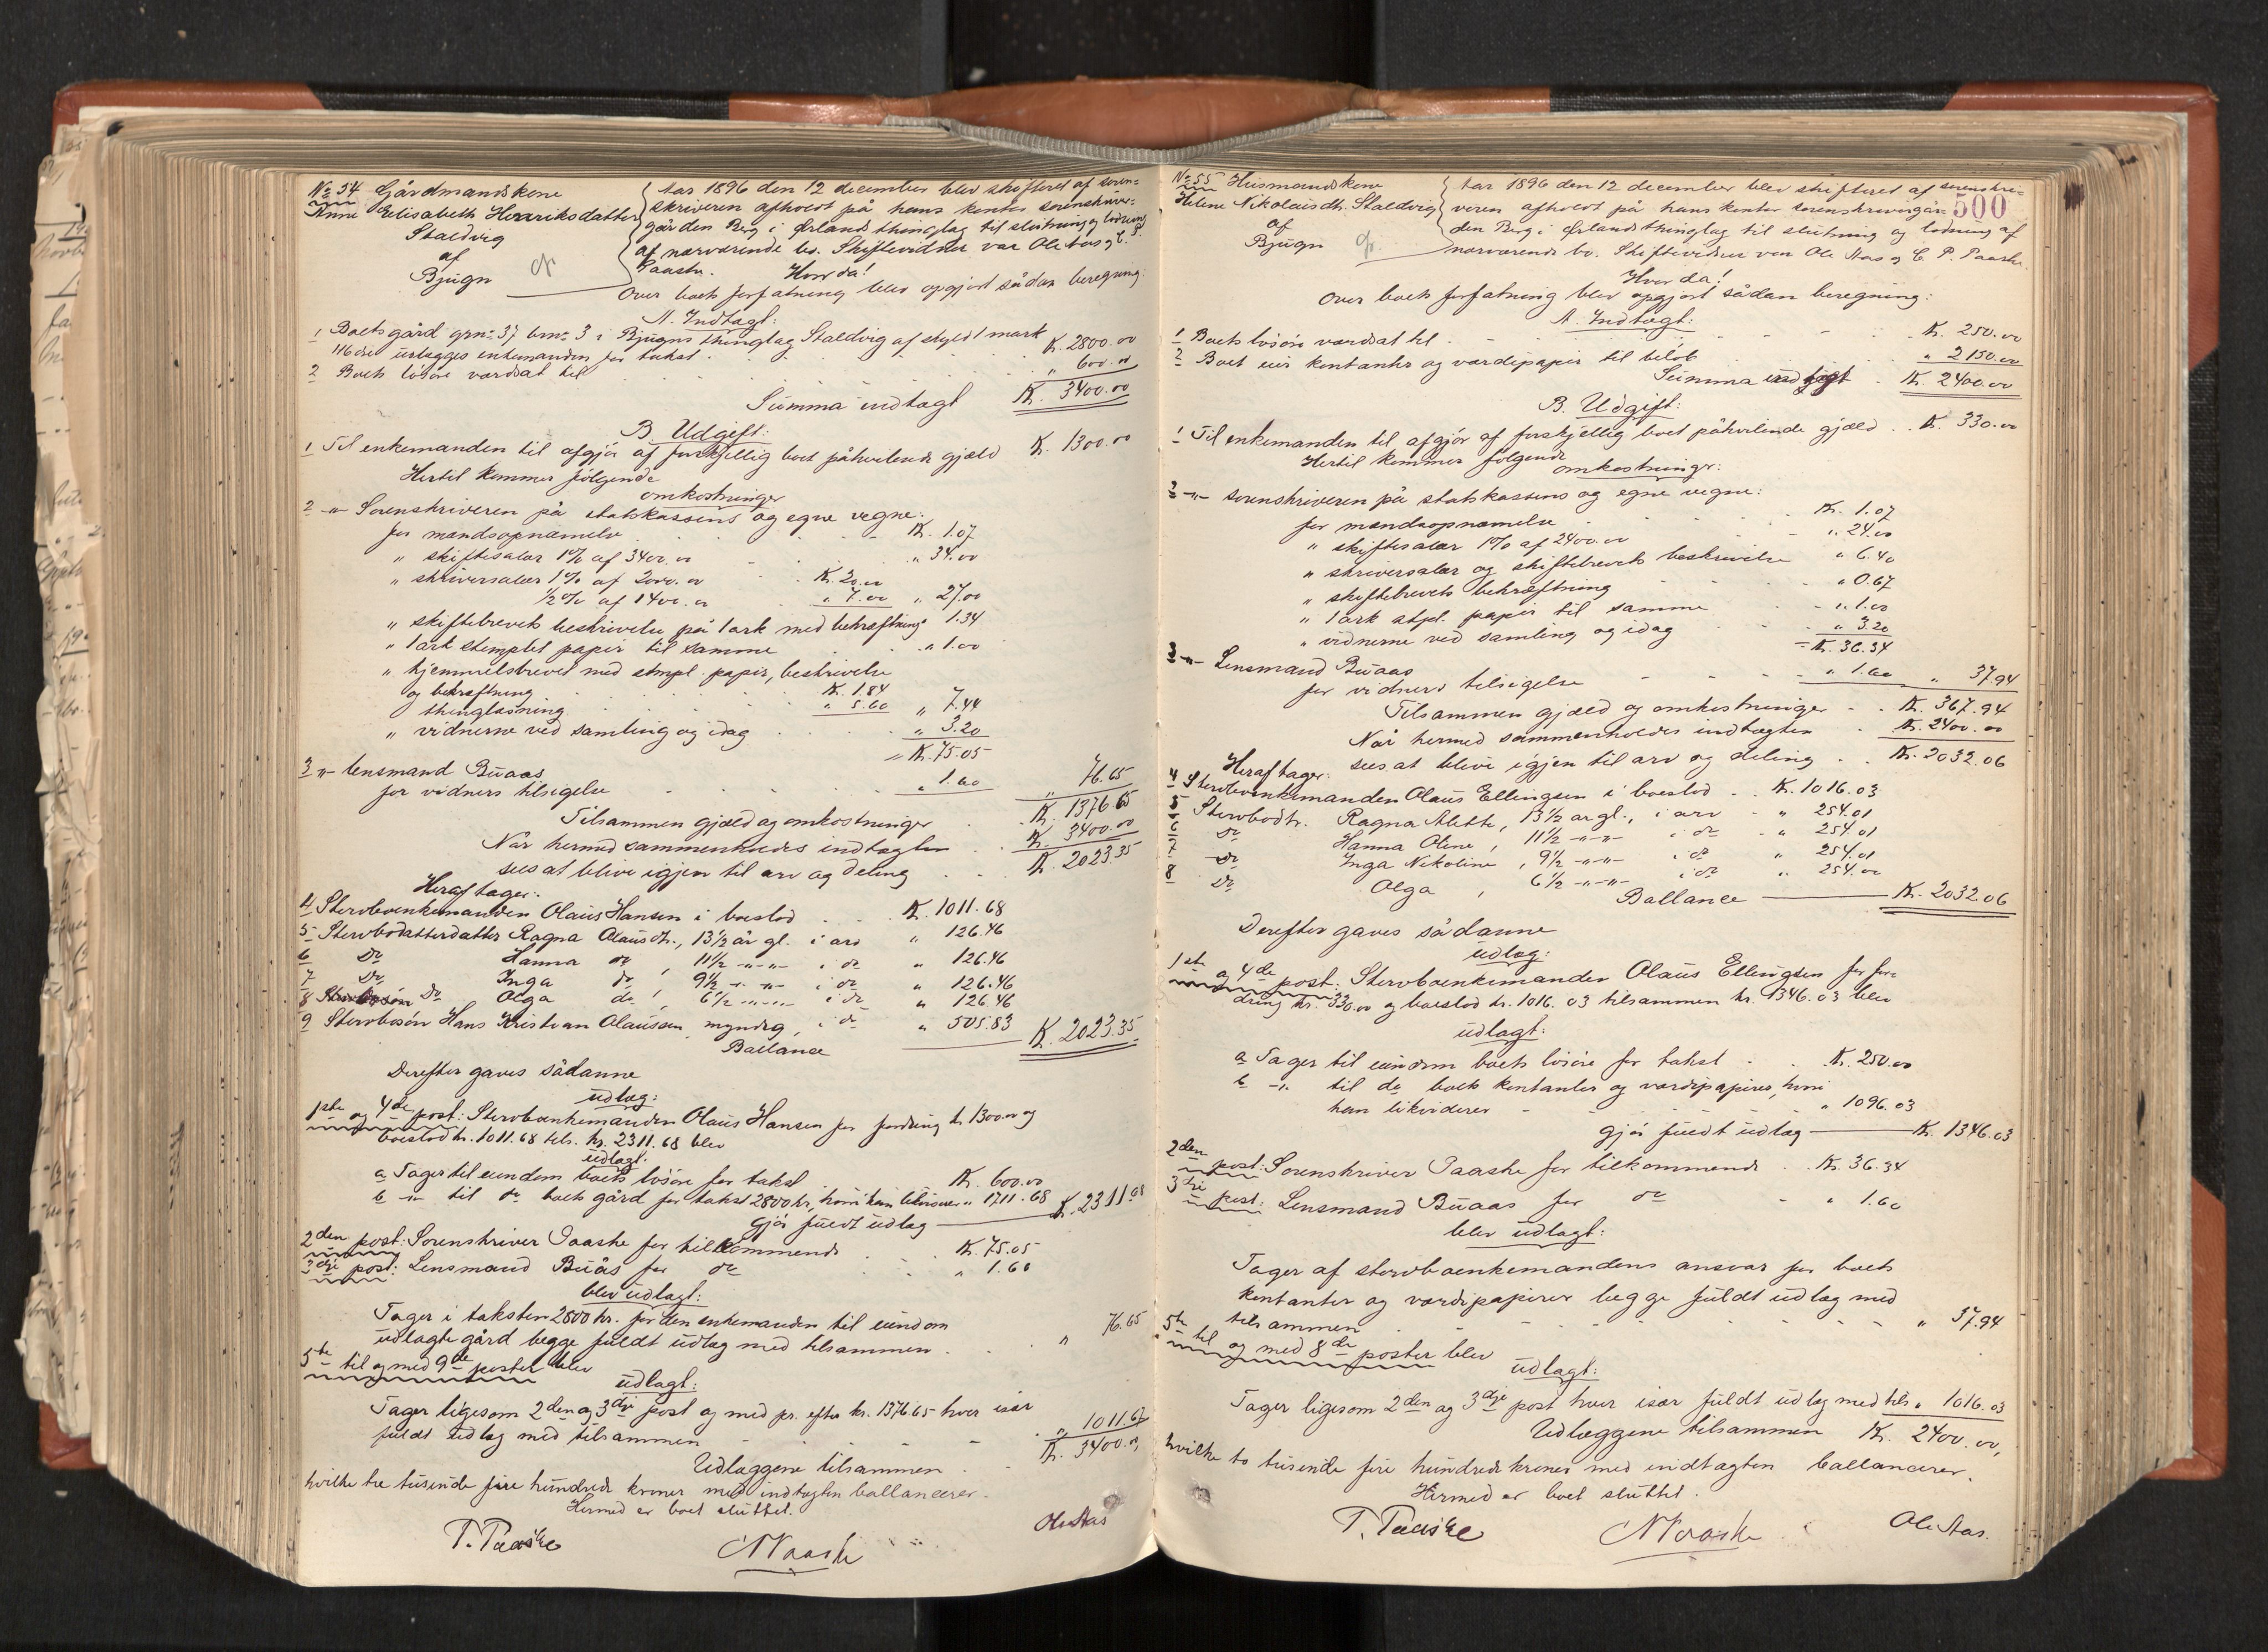 No 54 Gårdmandskone
Anne Elisabeth Henriksdatter
Staldvig
af
Bjugn
Aar 1896 den 12 december blev skifteret af soren-
skriveren afholdt på hans kontor sorenskriver-
gården Berg i Ørlands thinglag til slutning og lodning
af nærværende bo. Skiftevidner var Ole Aas og C. P.
Paaske. Hvorda!
Over boets forfatning blev opgjort sådan beregning:
A. Indtægt:
1 Boets gård grn: 37 brn: 3 i Bjugns thinglag Staldvig af skyld 1 mark
116 øre udlægges enkemanden for takst . . . K. 2800.00
2 Boets løsøre værdsat til . . . " 600.00
Summa indtægt K. 3400.00
B. Udgift:
1 Til enkemanden til afgjør af forskjellig boet påhvilende gjæld K. 1300.00
Hertil kommer følgende
omkostninger
2 -"- Sorenskriveren på statskassens og egne vegne:
for mandsopnævnelse . . . K. 1.07
" skiftesalær 1% af 3400.00 . . . " 34.00
" skriversalær 1% af 2000.00 . . K. 20.00
1/2% af 1400.00 " 7.00 " 27.00
" skiftebrevets beskrivelse på 1 ark med bekræftning " 1.34
" 1 ark stemplet papir til samme . . " 1.00
" hjemmelsbrevet med stmpl. papir, beskrivelse
og bekræftning . . . K. 1.84
thinglæsning . . . " 5.60 " 7.44
" vidnerne ved samling og idag . . . " 3.20
= K. 75.05
3 -"- lensmand Buaas
for vidners tilsigelse . . . " 1.60 " 76.65
Tilsammen gjæld og omkostninger . . K. 1376.65
Når hermed sammenholdes indtægten . . K. 3400.00
sees at blive igjen til arv og deling . . . K. 2023.35
Heraf tager:
4 Stervboenkemanden Olaus Hansen i boeslod . . K. 1011.68
5 Stervbodatterdatter Ragna Olausdtr., 13 1/2 år gl. i arv " 126.46
6 Do Hanna do , 11 1/2 -"-"- i do " 126.46
7 Do Inga do , 9 1/2 -"-"- i do " 126.46
8 Do Olga do , 6 1/2 -"-"- i do " 126.46
9 Stervbosøn Hans Kristian Olaussen, myndig, i do " 505.83
Ballance K. 2023.35
Derefter gaves sådanne
udlæg:
1ste og 4de post: Stervboenkemanden Olaus Hansen for fordring kr. 1300.00 og
boeslod kr. 1011.68 tils. kr. 2311.68 blev
udlagt:
a Tager til eiendom boets løsøre for takst . K. 600.00
b -"- til do boets gård for takst 2800 kr, hvori han likviderer " 1711.68
gjør fuldt udlæg K. 2311.68
2den post: Sorenskriver Paaske for tilkommende . . K. 75.05
3dje post: Lensmand Buås for do . . " 1.60
blev udlagt:
Tager i taksten 2800 kr. for den enkemanden til eiendom
udlagte gård begge fuldt udlæg med tilsammen . . " 76.65
5te til og med 9de poster blev
udlagt:
Tager ligesom 2den og 3dje post og med pr. efter kr. 1376.65 hver især
fuldt udlæg med tilsammen - - - " 1011.67
Udlæggene tilsammen . . K. 3400.00,
hvilke tre tusinde fire hundrede kroner med indtægten ballancerer.
Hermed er boet sluttet.
T. Paaske
Ole Aas
500
No 55 Husmandskone
Helene Nikolausdtr. Staldvig
af
Bjugn
Aar 1896 den 12 december blev skifteret af sorenskri-
veren afholdt på hans kontor sorenskrivergår-
den Berg i Ørlands thinglag til slutning og lodning af
nærværende bo. Skiftevidner var Ole Aas og C. P. Paaske.
Hvorda!
Over boets forfatning blev opgjort sådan beregning:
A. Indtægt:
1 Boets løsøre værdsat til . . . K. 250.00
2 Boet eier kontanter og værdipapir til beløb " 2150.00
Summa indtægt . K. 2400.00
B. Udgift:
1 Til enkemanden til afgjør af forskjellig boet påhvilende gjæld . . K. 330.00
Hertil kommer følgende
omkostninger:
2 -"- sorenskriveren på statskassens og egne vegne:
for mandsopnævnelse . . . K. 1.07
" skiftesalær 1% af 2400.00 . . " 24.00
" skriversalær og skiftebrevets beskrivelse " 6.40
" skiftebrevets bekræftning . . . " 0.67
" 1 ark stpl. papir til samme . . " 1.00
" vidnerne ved samling og idag . . " 3.20
= K. 36.34
3 -"- Lensmand Buaas
for vidners tilsigelse . . . " 1.60 " 37.94
Tilsammen gjæld og omkostninger . . K. 367.94
Når hermed sammenholdes indtægten . K. 2400.00
sees at blive igjen til arv og deling . . K. 2032.06
Heraf tager:
4 Stervboenkemanden Olaus Ellingsen i boeslod . . K. 1016.03
5 Stervbodtr. Ragna Alette, 13 1/2 år gl., i arv . " 254.01
6 do Hanna Oline , 11 1/2 -"-"- i do " 254.01
7 do Inga Nikoline , 9 1/2 -"-"- i do " 254.01
8 Do Olga , 6 1/2 -"-"- i do " 254.00
Ballance K. 2032.06
Derefter gaves sådanne
udlæg:
1ste og 4de post: Stervboenkemanden Olaus Ellingsen for for-
dring kr. 330.00 og boeslod kr. 1016.03 tilsammen kr. 1346.03 blev
udlagt:
a Tager til eiendom boets løsøre for takst . . K. 250.00
b -"- til do boets kontanter og værdipapirer, hvori
han likviderer - - - " 1096.03
gjør fuldt udlæg K. 1346.03
2den post: Sorenskriver Paaske for tilkommende . . K. 36.34
3dje post: Lensmand Buaas for do - " 1.60
blev udlagt:
Tager af stervboenkemandens ansvar for boets
kontanter og værdipapirer begge fuldt udlæg med
tilsammen - - - " 37.94
5te til og med 8de poster blev
udlagt:
Tager ligesom 2den og 3dje post hver især fuldt udlæg med tils " 1016.03
Udlæggene tilsammen K. 2400.00,
hvilke to tusinde fire hundrede kroner med indtægten ballancerer.
Hermed er boet sluttet.
T. Paaske
Ole Aas.